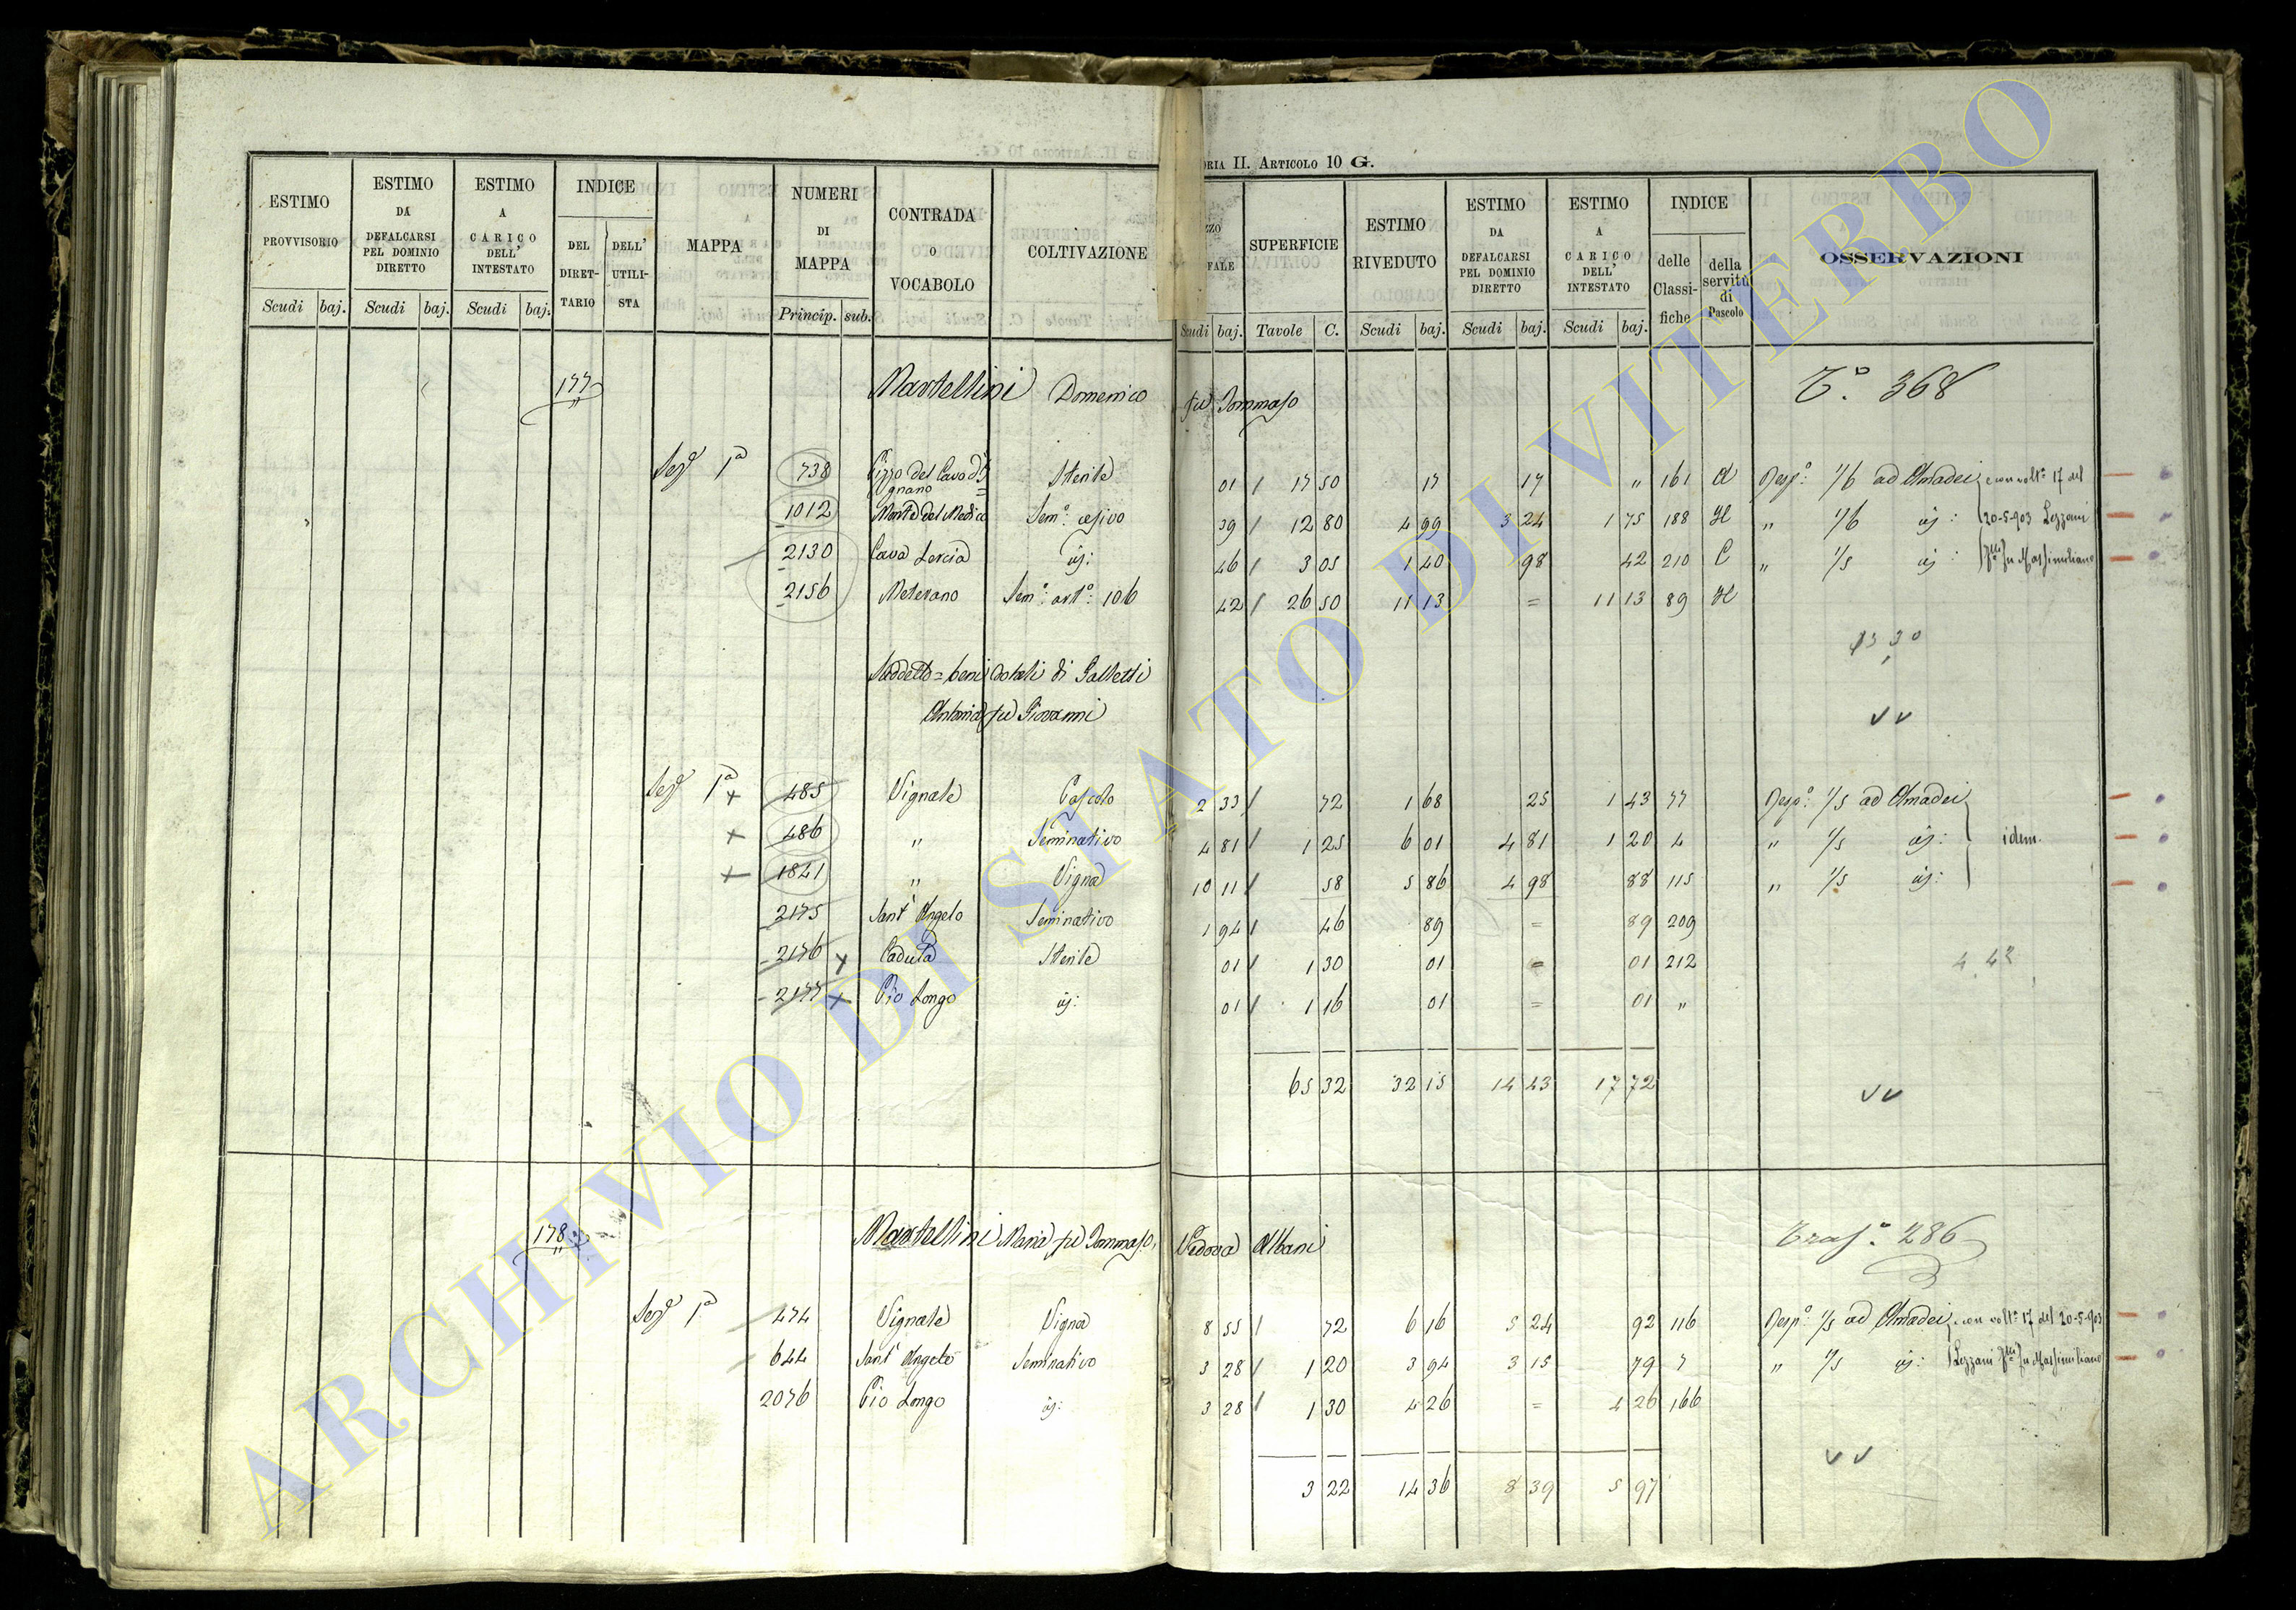 ORIA II. ARTICOLO 10 G.
ESTIMO PROVVISORIO Scudi baj.
ESTIMO DA DEFALCARSI PEL DOMINIO DIRETTO Scudi baj.
ESTIMO A CARICO DELL' INTESTATO Scudi baj.
INDICE DEL DIRETTARIO DELL' UTILISTA
MAPPA
NUMERI DI MAPPA Princip. sub.
CONTRADA O VOCABOLO
COLTIVAZIONE
ZZO FALE Scudi baj.
SUPERFICIE Tavole C.
ESTIMO RIVEDUTO Scudi baj.
ESTIMO DA DEFALCARSI PEL DOMINIO DIRETTO Scudi baj.
ESTIMO A CARICO DELL' INTESTATO Scudi baj.
INDICE delle Classifiche della servitù di Pascolo
OSSERVAZIONI
177 Martellini Domenico fu Tommaso T.° 368
Sez.e 1a 738 Pizzo del Cavo d' Ignano = Sterile 01 / 17 50 17 17 " 161 A Resp.° 1/6 ad Amadei con volt.a 17 del
1012 Monte del Medico Sem.° cesivo 39 / 12 80 4 99 3 24 1 75 188 H " 1/6 id: 20-5-903 Lezzani
2130 Cava Lercia id: 46 / 3 05 1 40 98 42 210 C " 1/5 id: fu Massimiliano
2156 Meterano Sem.° art.° 106 42 / 26 50 11 13 = 11 13 89 H
13 30
Suddetto = beni dotali di Galletti
Antonia fu Giovanni
v v
Sez.e 1a x 485 Vignale Pascolo 2 33 / 72 1 68 25 1 43 77 Resp.° 1/5 ad Amadei
x 486 " Seminativo 4 81 / 1 25 6 01 4 81 1 20 4 " 1/5 id: idem.
x 1841 " Vigna 10 11 / 58 5 86 4 98 88 115 " 1/5 id:
2175 Sant' Angelo Seminativo 1 94 / 46 89 = 89 209
2176 x Caduta Sterile 01 / 1 30 01 = 01 212 4 42
2177 x Pio Longo id: 01 / 1 16 01 = 01 "
65 32 32 15 14 43 17 72 v v
178 Martellini Maria fu Tommaso, Vedova Albani Tras.° 286
Sez.e 1a 474 Vignale Vigna 8 55 / 72 6 16 5 24 92 116 Resp.° 1/5 ad Amadei con volt.a 17 del 20-5-903
644 Sant' Angelo Seminativo 3 28 / 1 20 3 94 3 15 79 7 " 1/5 id: Lezzani fu Massimiliano
2076 Pio Longo id: 3 28 / 1 30 4 26 = 4 26 166
v v
3 22 14 36 8 39 5 97
ARCHIVIO DI STATO DI VITERBO